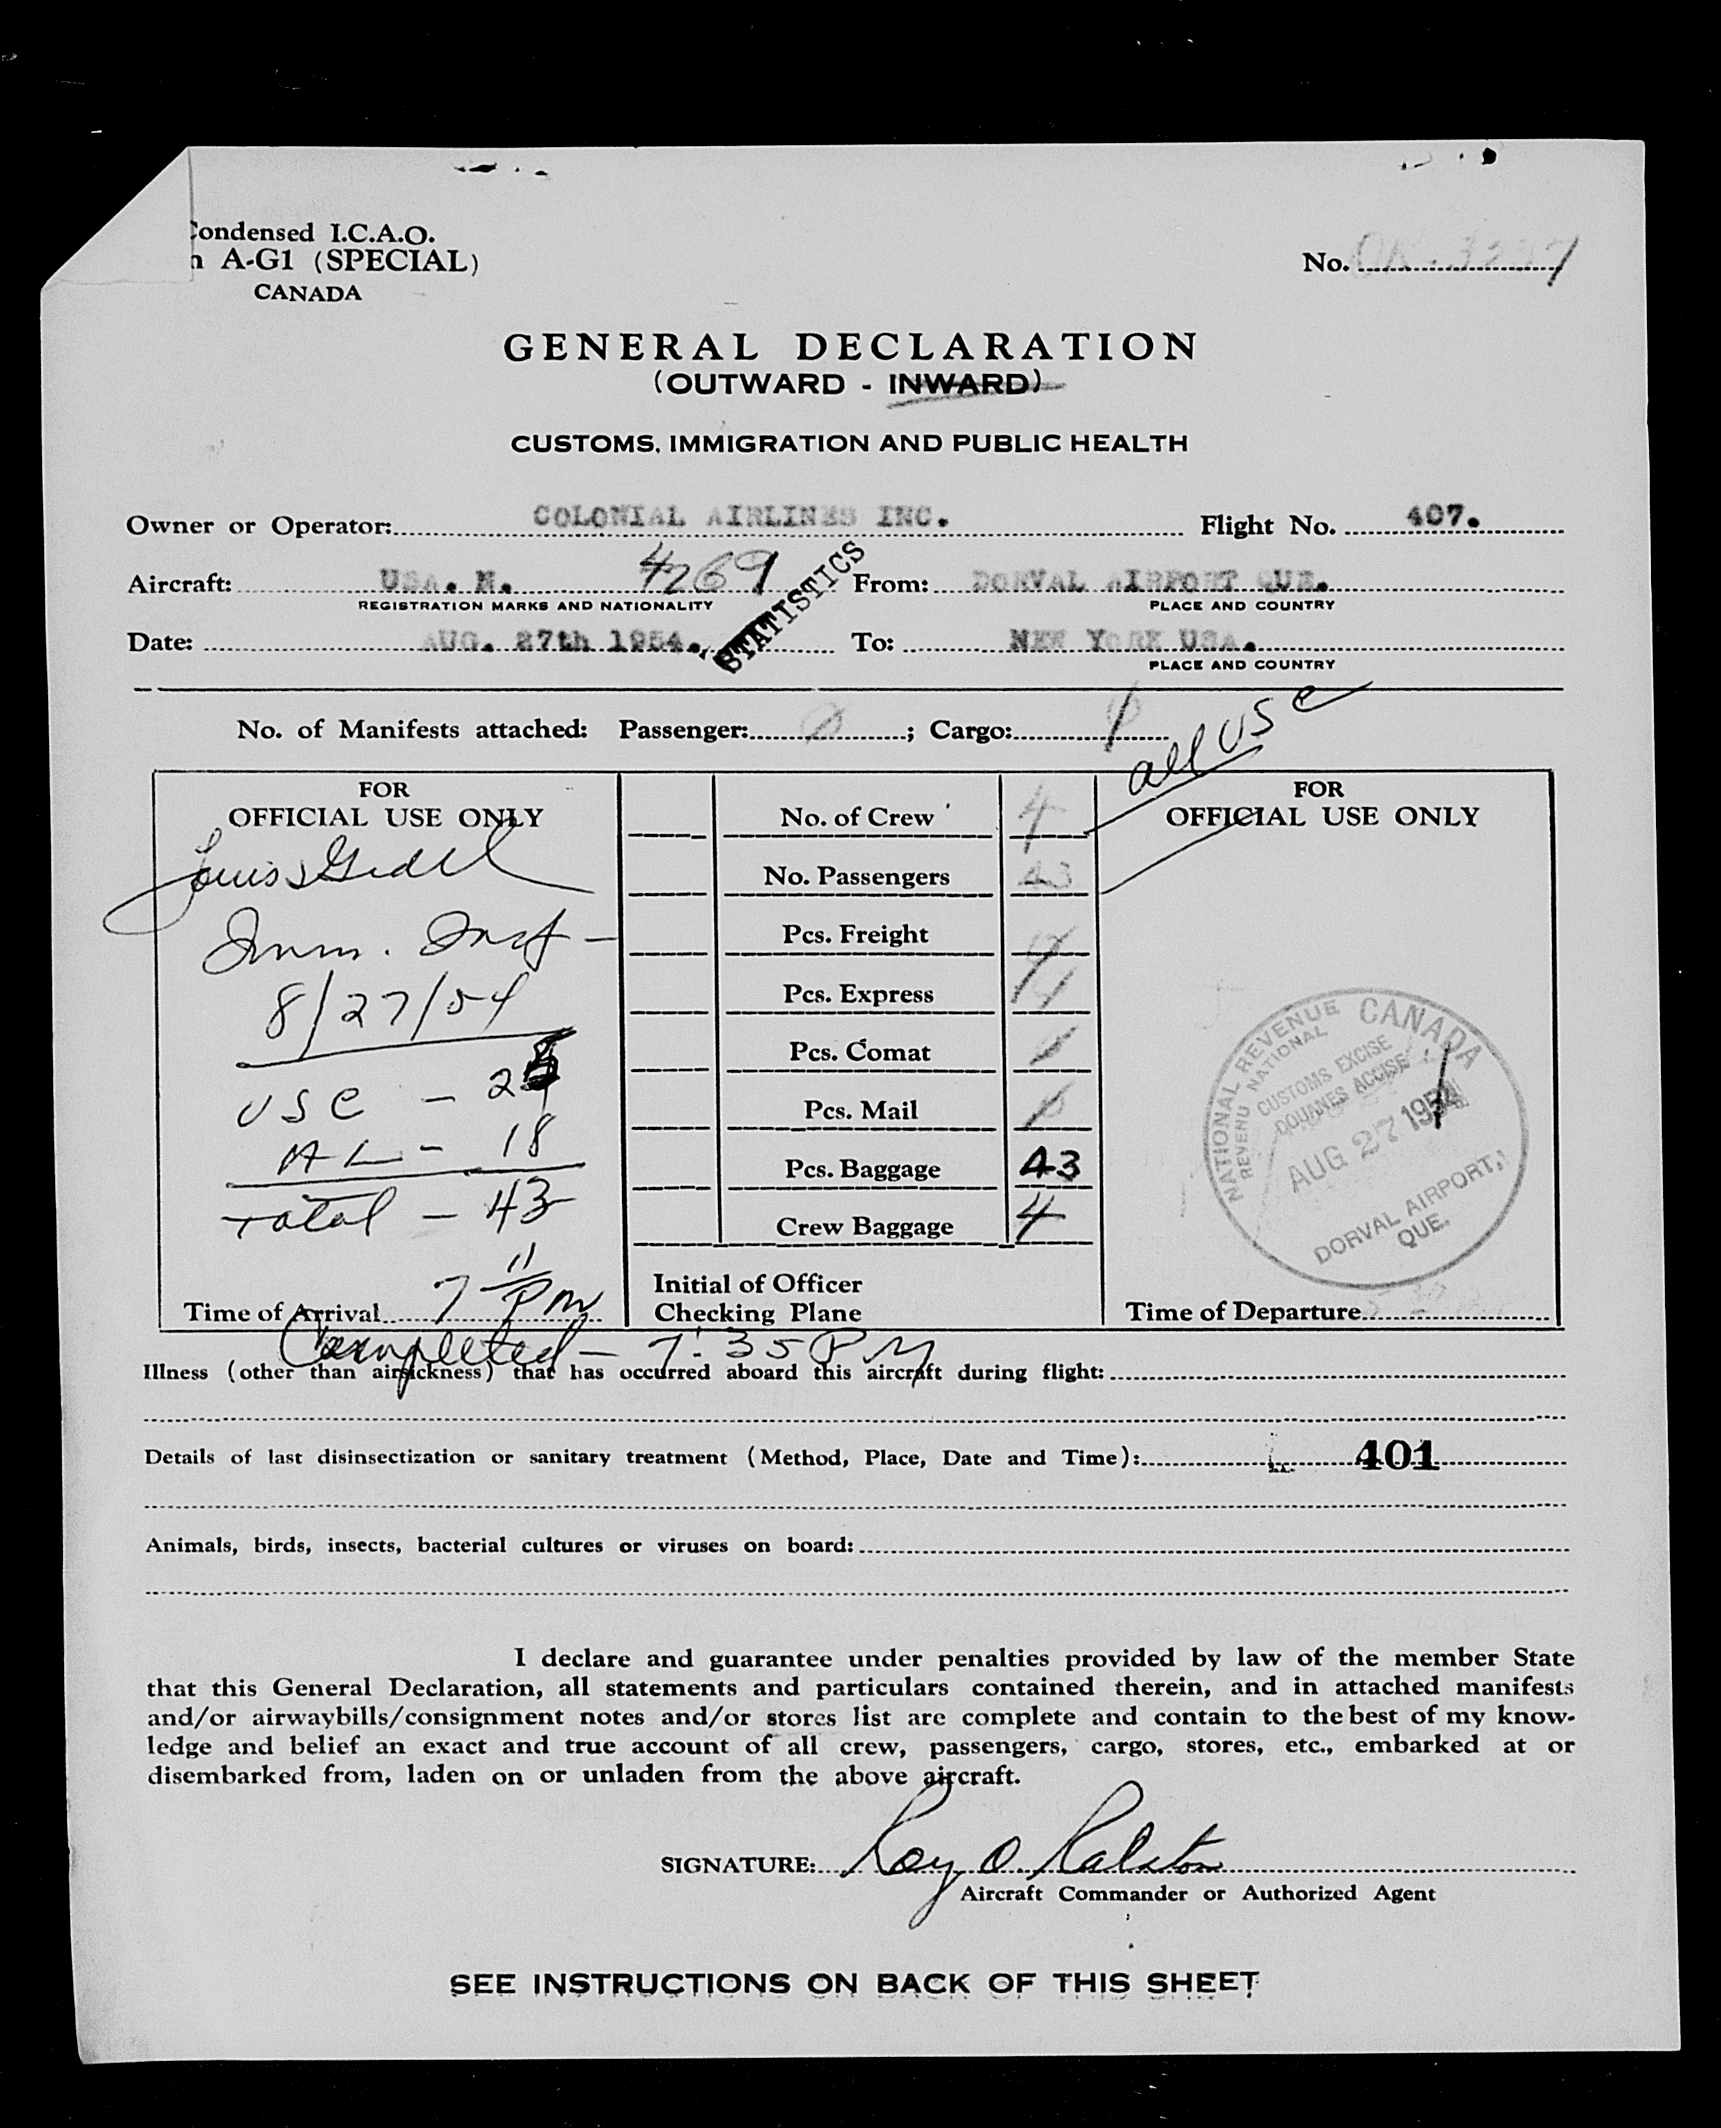 Condensed I.C.A.O.
A-G1 (SPECIAL)
CANADA
No.
GENERAL DECLARATION
(OUTWARD - INWARD)
CUSTOMS, IMMIGRATION AND PUBLIC HEALTH
Owner or Operator: COLONIAL AIRLINES INC. Flight No. 407.
Aircraft: USA. N. 4269 From: DORVAL AIRPORT QUE.
REGISTRATION MARKS AND NATIONALITY PLACE AND COUNTRY
STATISTICS
Date: AUG. 27th 1954. To: NEW YORK USA.
PLACE AND COUNTRY
No. of Manifests attached: Passenger: ; Cargo: 1
all USC
FOR
OFFICIAL USE ONLY
Louis
Imm. Insp
8/27/54
USC - 25
AL - 18
Total - 43
Time of Arrival 7 11 PM
Completed - 7:35 PM
No. of Crew 4
No. Passengers 43
Pcs. Freight
Pcs. Express
Pcs. Comat
Pcs. Mail
Pcs. Baggage 43
Crew Baggage 4
Initial of Officer
Checking Plane
FOR
OFFICIAL USE ONLY
NATIONAL REVENUE CANADA
REVENU NATIONAL
CUSTOMS EXCISE
DOUANES ACCISE
AUG 27 1954
DORVAL AIRPORT,
QUE.
Time of Departure
Illness (other than airsickness) that has occurred aboard this aircraft during flight:
Details of last disinsectization or sanitary treatment (Method, Place, Date and Time): 401
Animals, birds, insects, bacterial cultures or viruses on board:
I declare and guarantee under penalties provided by law of the member State
that this General Declaration, all statements and particulars contained therein, and in attached manifests
and/or airwaybills/consignment notes and/or stores list are complete and contain to the best of my know-
ledge and belief an exact and true account of all crew, passengers, cargo, stores, etc., embarked at or
disembarked from, laden on or unladen from the above aircraft.
SIGNATURE: Roy O Ralston
Aircraft Commander or Authorized Agent
SEE INSTRUCTIONS ON BACK OF THIS SHEET